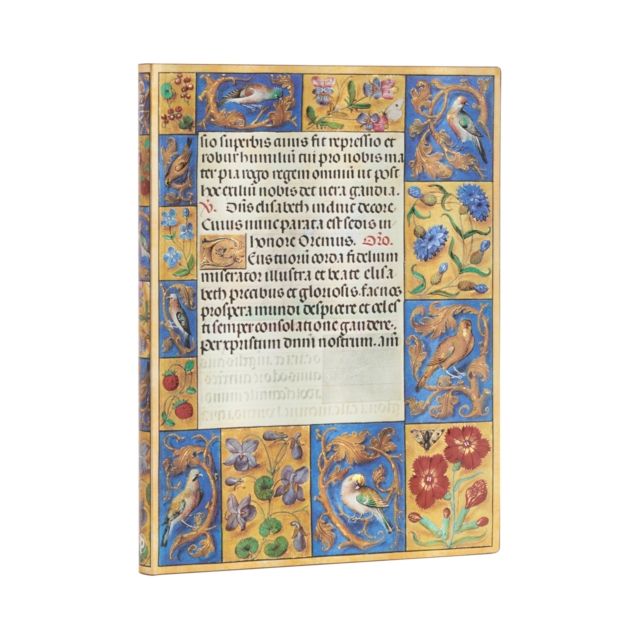 sio superbis cuius fit repressio et
robur humiliū cui pro nobis ma
ter pia rogo regem omniū ut post
hoc exiliū nobis det vera gaudia.
V. Dn̄s elisabeth induit decore.
Cuius nunc parata est sedis in
honore Oremus. Oro.
Eus tuorū corda fidelium
miserator illustra et beate elisa
beth precibus et gloriosis. fac nos
prospera mundi despicere et celes
ti semper consolatione gaudere.
Per xpristum dn̄m nostrum. Am